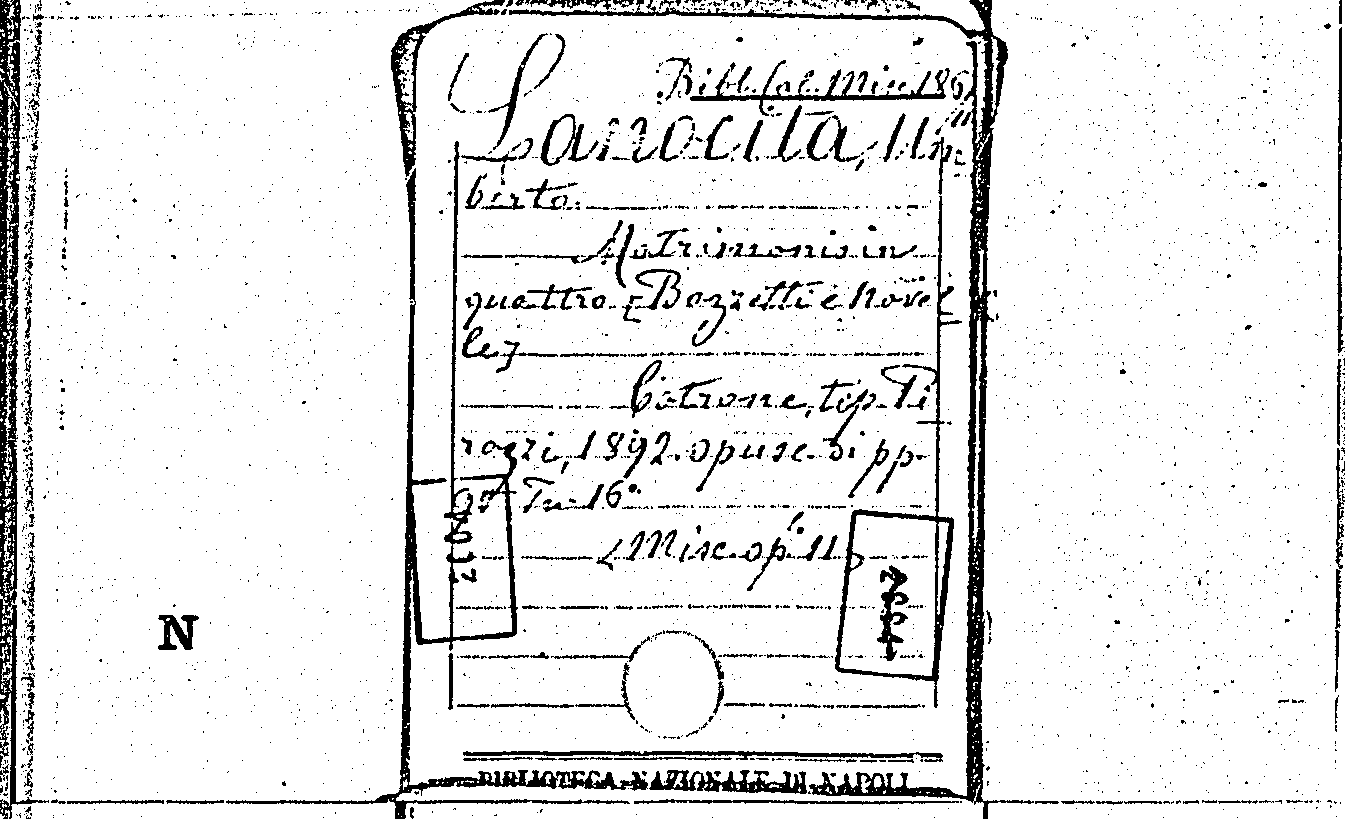 Bibl. Cal. Misc. 186
Lanocita, Um
berto.
Matrimonio in
quattro [Bozzetti e novel
le]
Cotrone, tip. Pi
rozzi, 1892. opusc. di pp.
In 16°
Misc. op. 11
2664
N
BIBLIOTECA NAZIONALE DI NAPOLI